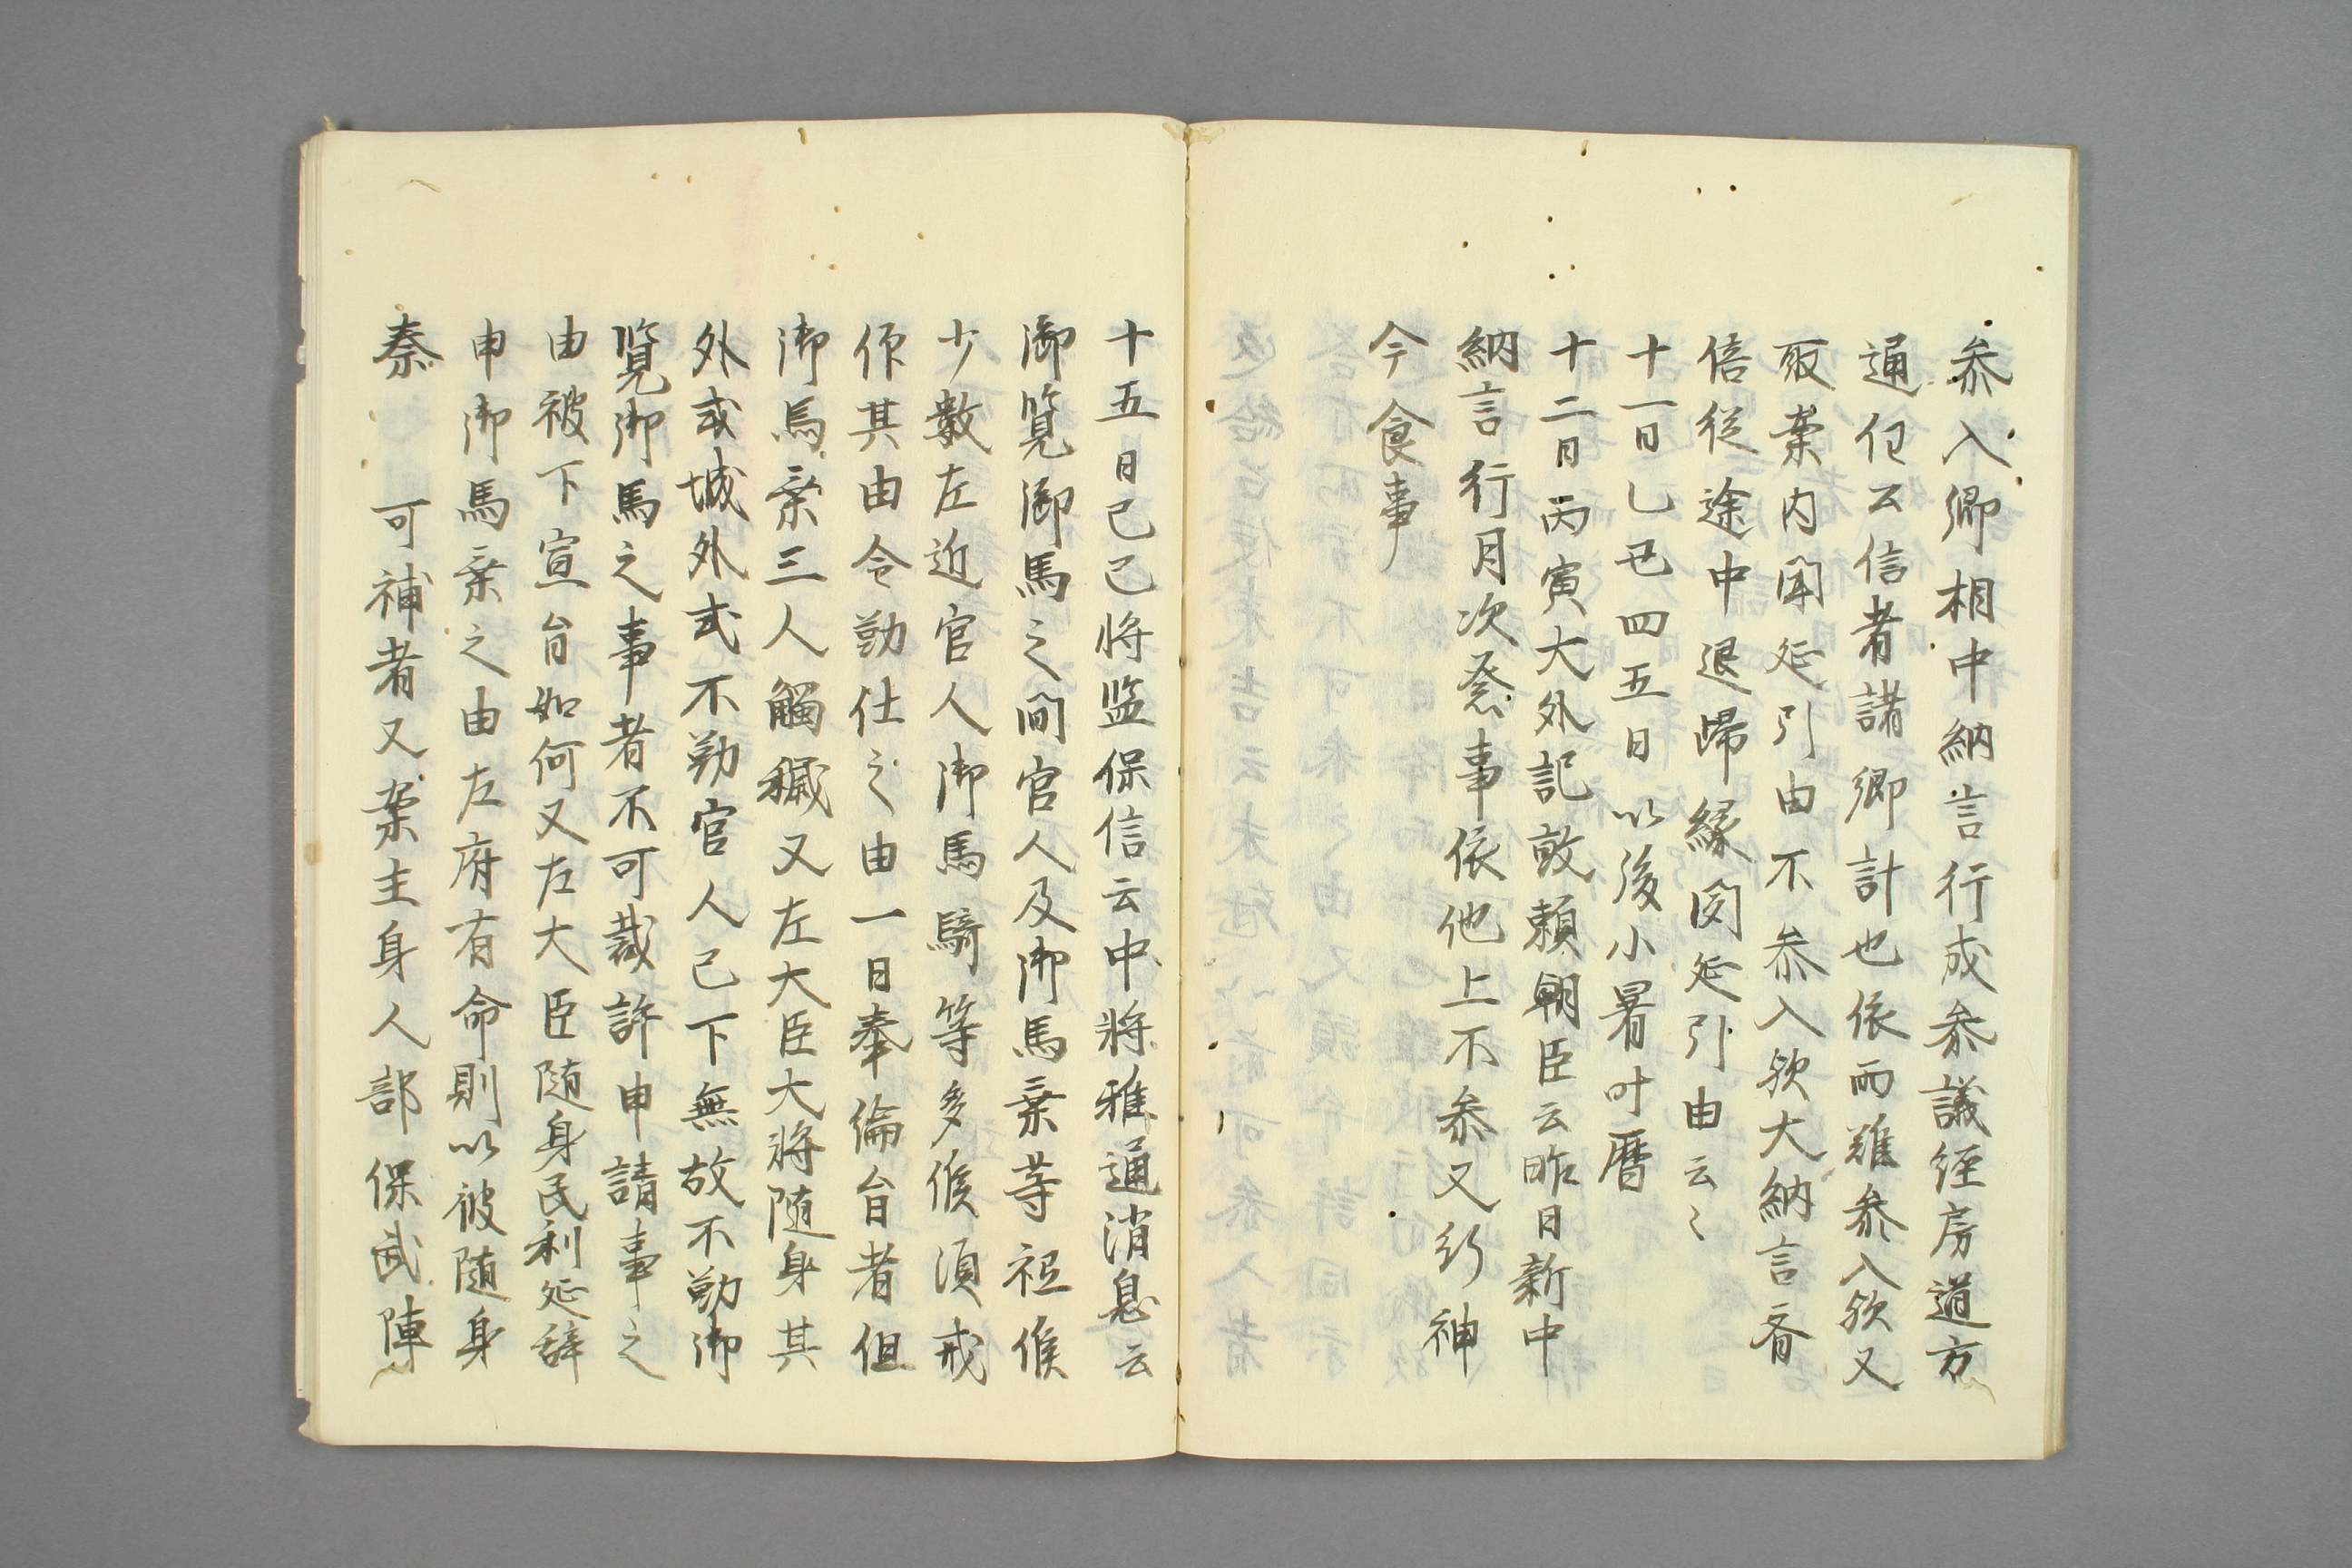 参入卿相中納言行成参議経房道方
通任云信者諸卿計也依而難参入欤又
取案内聞延引由不参入欤大納言斉
信従途中退帰縁聞延引由云〻
十一日乙丑四五日以後小暑叶暦
十二日丙寅大外記敦頼朝臣云昨日新中
納言行月次祭事依他上不参又行神
今食事
十五日己巳将監保信云中将雅通消息云
御覧御馬之間官人及御馬乗等祗候
少数左近官人御馬騎等多候須戒
仰其由令勤仕之由一日奉倫旨者但
御馬乗三人觸穢又左大臣大将随身其
外或城外或不勤官人已下無故不勤御
覧御馬之事者不可裁許申請事之
由被下宣旨如何又左大臣随身民利延辞
申御馬乗之由左府有命則以彼随身
秦　可補者又案主身人部保武陣